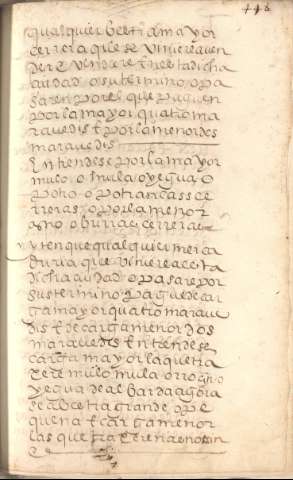 448
qualquier bestia mayor
cerrera que se viniere a ven
der E vendiere En esta dicha
ciudad o su termino o pa
saren por el que paguen
por la mayor quatro ma
ravedis E por la menor dos
maravedis
Entiendese por la mayor
mulo o mula o yegua o
potro o potrancas ce
rreras o por la menor
asno o burra cerrera
yten que qualquier merca
duria que viniere a esta
dicha ciudad o pasare por
su termino pague de car
ga mayor quatro marave
dis E de carga menor dos
maravedis Entiendese
carga mayor la que tra
xere mulo mula o rrocino
y yegua de albarda agora
sea bestia grande o pe
quena E carga menor
las que traxere asno